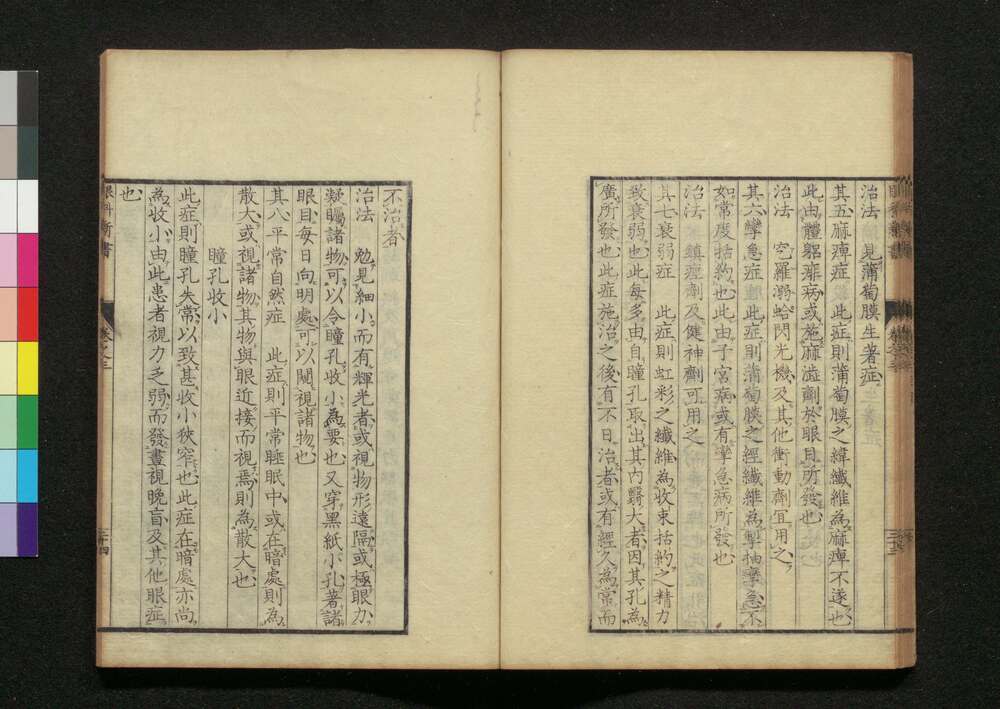 治法　見蒲萄膜生著症
其五麻痺症　此症則蒲萄膜之緯纖維為麻痺不遂也
此由體軀癖病或施麻澁劑於眼目所發也
治法　空羅溺蛤閃光機及其他衝動劑宜用之
其六攣急症　此症則蒲萄膜之經纖維為掣抽攣急不
如常度括約也此由子宮病或有攣急病所發也
治法　鎮痙劑及健神劑可用之
其七衰弱症　此症則虹彩之纖維為收束括約之精力
致衰弱也此每多由自瞳孔取出其內翳大者因其孔為
廣所發也此症施治之後有不日治者或有經久為常而
不治者
治法　勉見細小而有輝光者或視物形遠隔或極眼力
凝矚諸物可以令瞳孔收小為要也又穿黑紙小孔著諸
眼目每日向明處可以閱視諸物也
其八平常自然症　此症則平常睡眠中或在暗處則為
散大或視諸物其物與眼近接而視焉則為散大也
瞳孔收小
此症則瞳孔失常以致甚收小狹窄也此症在暗處亦尚
為收小由此患者視力乏弱而發晝視晚盲及其他眼症
也
眼科新書
卷之三
三十四